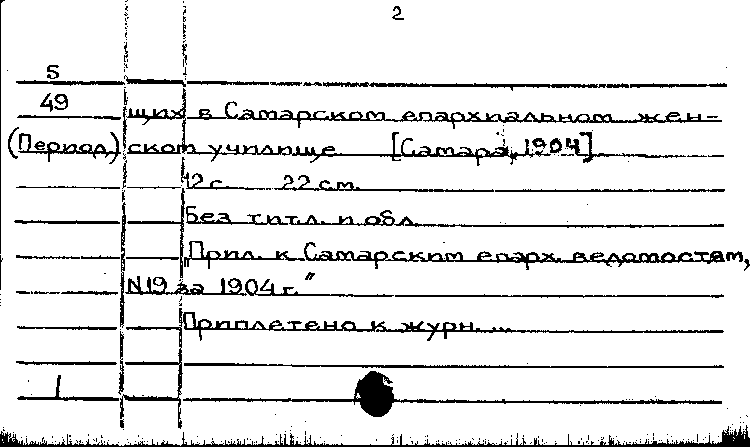 2
5
49 щих в Самарском епархиальном жен-
(Период) ском училище [Самара, 1904]
12 с. 22 см.
Без титл. и обл.
„Прил. к Самарским епарх. ведомостям,
N19 за 1904 г.“
Приплетено к журн. ...
1